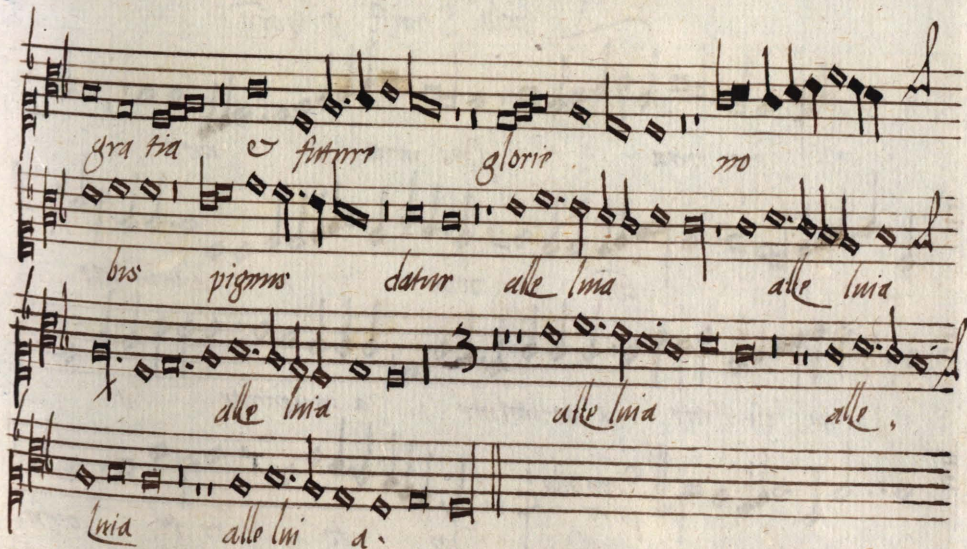 gra tia & future glorie no
bis pignus datur alle luia alle luia
alle luia 3 alle luia alle.
luia alle lui a.